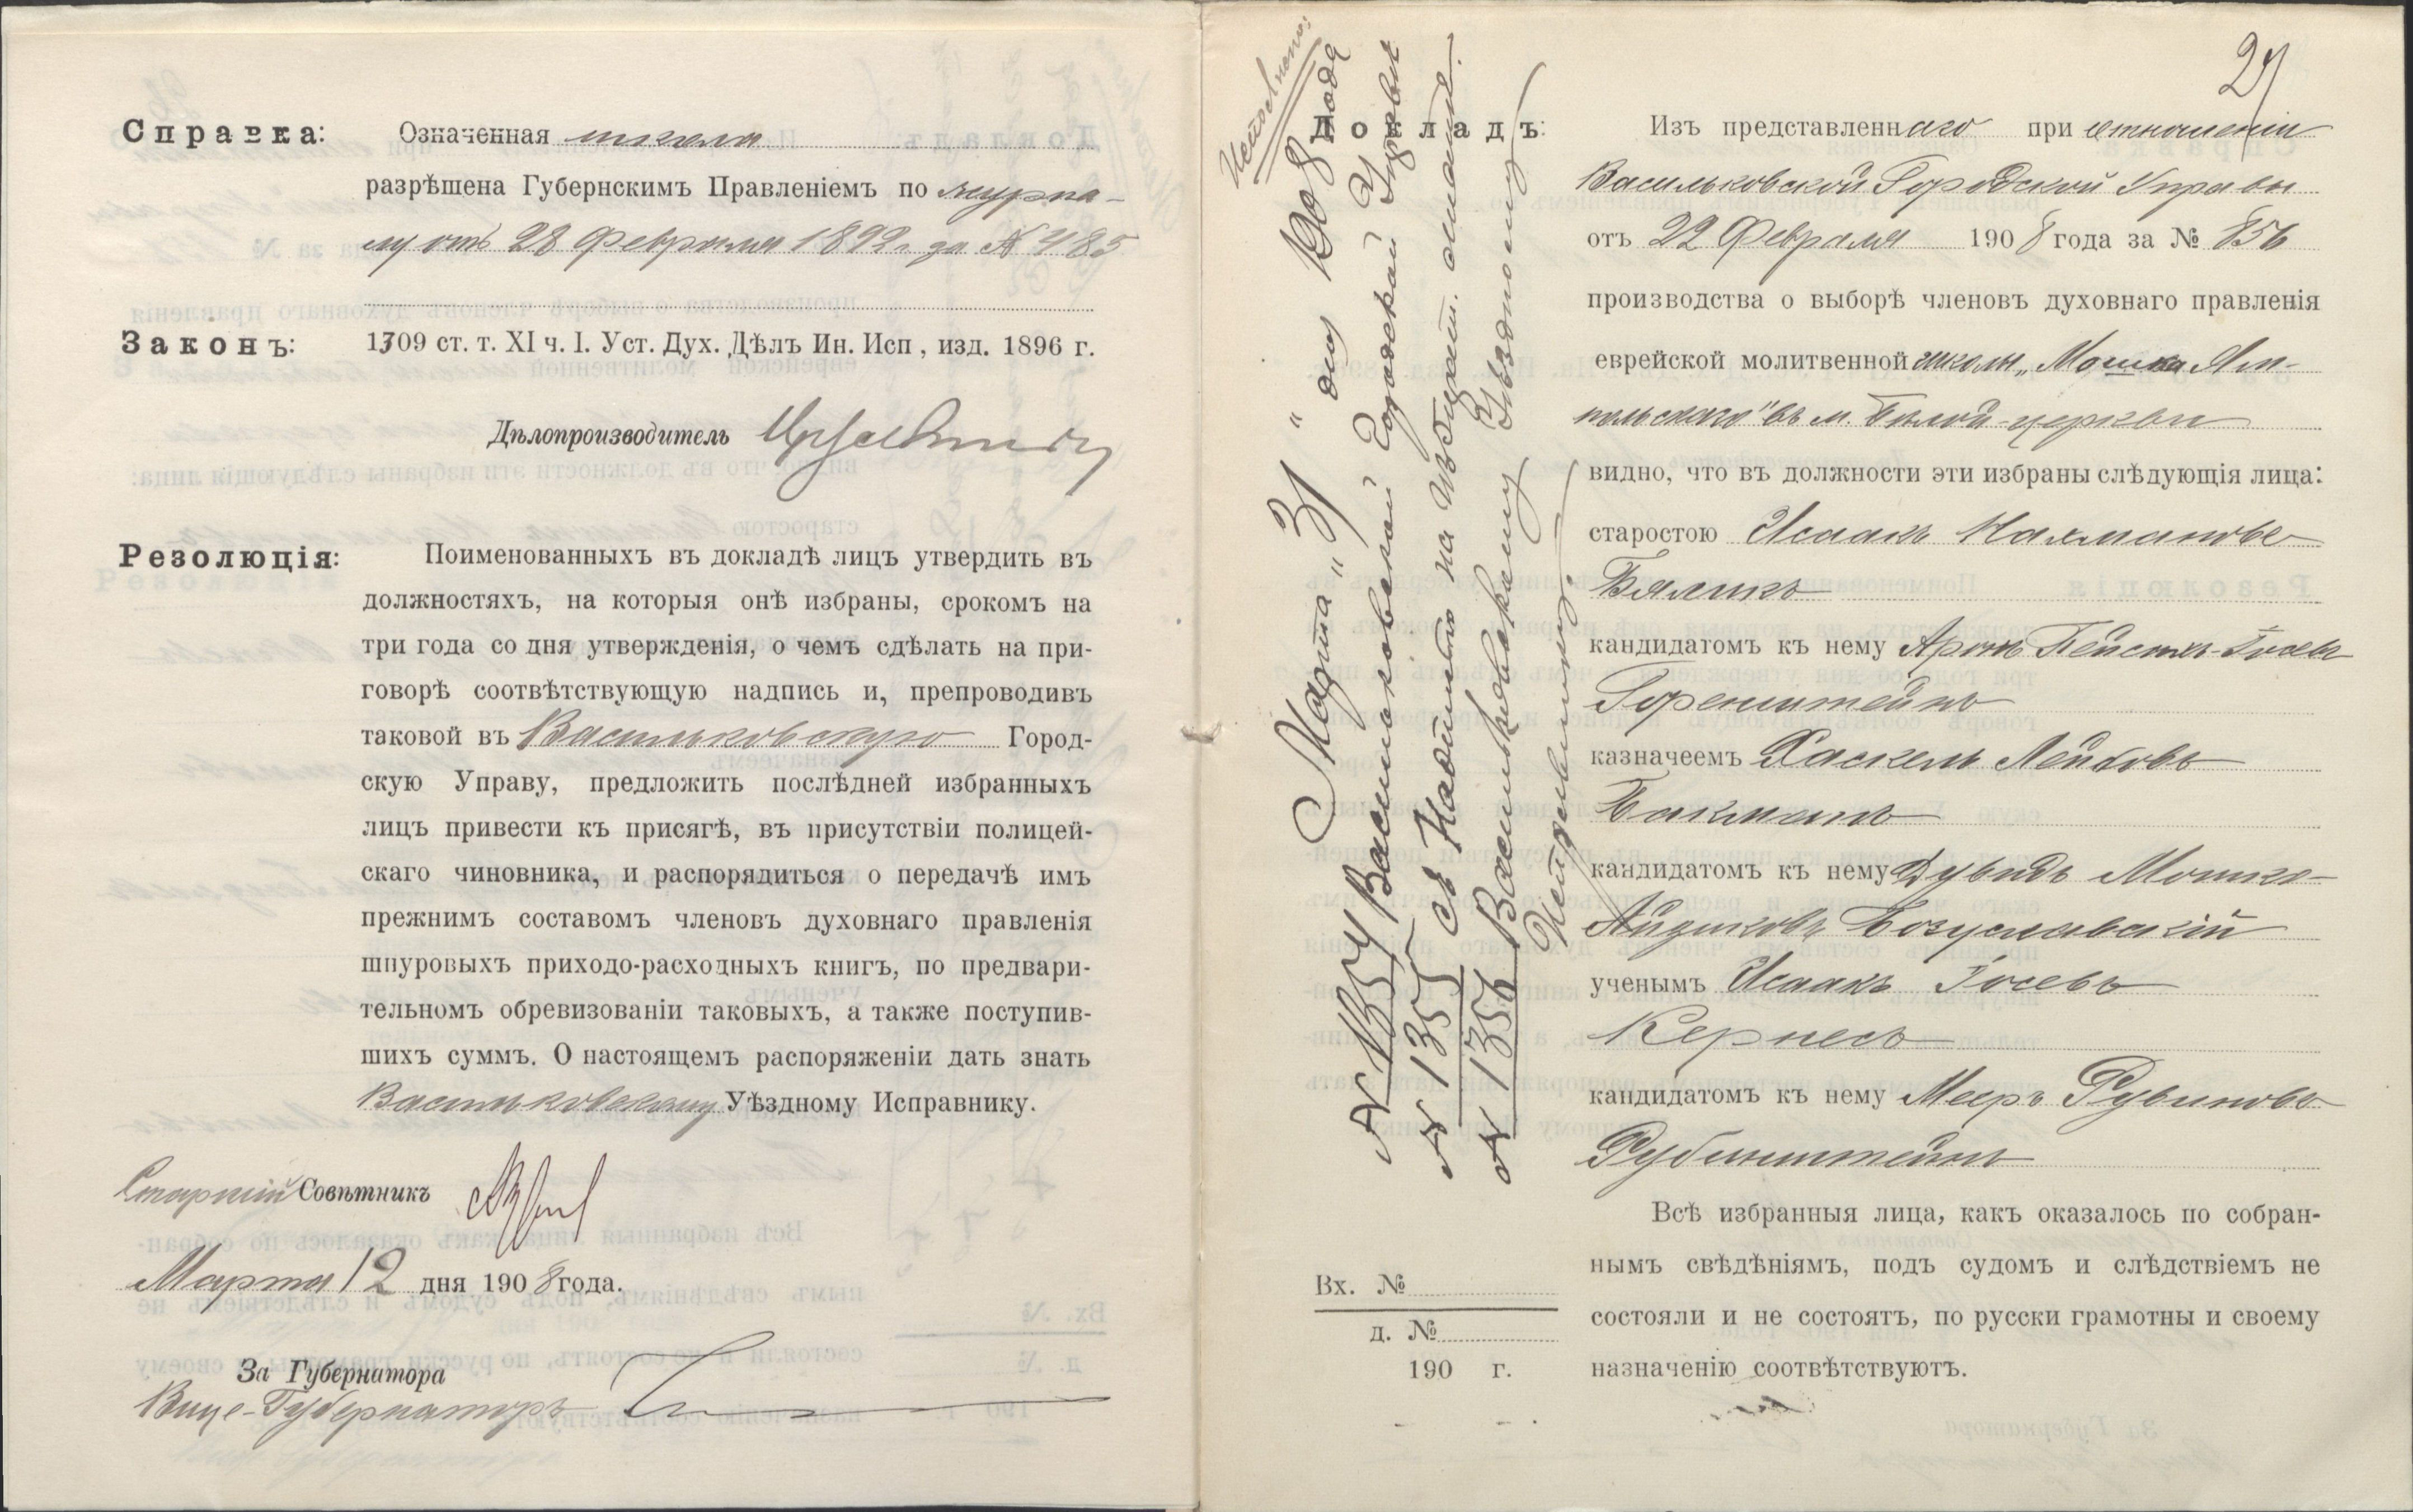 Справка: Означенная школа
разрѣшена Губернскимъ Правленіемъ по журна-
лу отъ 28 Февраля 1892 г. за № 485
Законъ: 1309 ст. т. XI ч. I. Уст. Дух. Дѣлъ Ин. Исп., изд. 1896 г.
Дѣлопроизводитель
Резолюція: Поименованныхъ въ докладѣ лицъ утвердить въ
должностяхъ, на которыя онѣ избраны, срокомъ на
три года со дня утвержденія, о чемъ сдѣлать на при-
говорѣ соотвѣтствующую надпись и, препроводивъ
таковой въ Васильковскую Город-
скую Управу, предложить послѣдней избранныхъ
лицъ привести къ присягѣ, въ присутствіи полицей-
скаго чиновника, и распорядиться о передачѣ имъ
прежнимъ составомъ членовъ духовнаго правленія
шнуровыхъ приходо-расходныхъ книгъ, по предвари-
тельномъ обревизованіи таковыхъ, а также поступив-
шихъ суммъ. О настоящемъ распоряженіи дать знать
Васильковскому Уѣздному Исправнику.
Старшій Совѣтникъ
Марта 12 дня 1908 года.
За Губернатора
Вице-Губернаторъ
27
Исполнено:
Марта "31" дня 1908 года
№ 1354 Васильковской Городской Управѣ
№ 1355 съ Надписью на избират.
№ 1356 Васильковскому Уѣздному
Исправнику.
Докладъ: Изъ представленнаго при отношеніи
Васильковской Городской Управы
отъ 22 Февраля 1908 года за № 856
производства о выборѣ членовъ духовнаго правленія
еврейской молитвенной школы „Мошка Ям-
польскаго" въ м. Бѣлой-церкви
видно, что въ должности эти избраны слѣдующія лица:
старостою Исаакъ Нахмановъ
Бяликъ
кандидатомъ къ нему Аронъ Пейсахъ-Іосевъ
Горенштейнъ
казначеемъ Хаскель Лейбовъ
Бакманъ
кандидатомъ къ нему Дувидъ Мошко-
Айзиковъ Богуславскій
ученымъ Исаакъ Іосевъ
Кернесъ
кандидатомъ къ нему Мееръ Рувиновъ
Рубинштейнъ
Всѣ избранныя лица, какъ оказалось по собран-
нымъ свѣдѣніямъ, подъ судомъ и слѣдствіемъ не
состояли и не состоятъ, по русски грамотны и своему
назначенію соотвѣтствуютъ.
Вх. №
д. №
190 г.